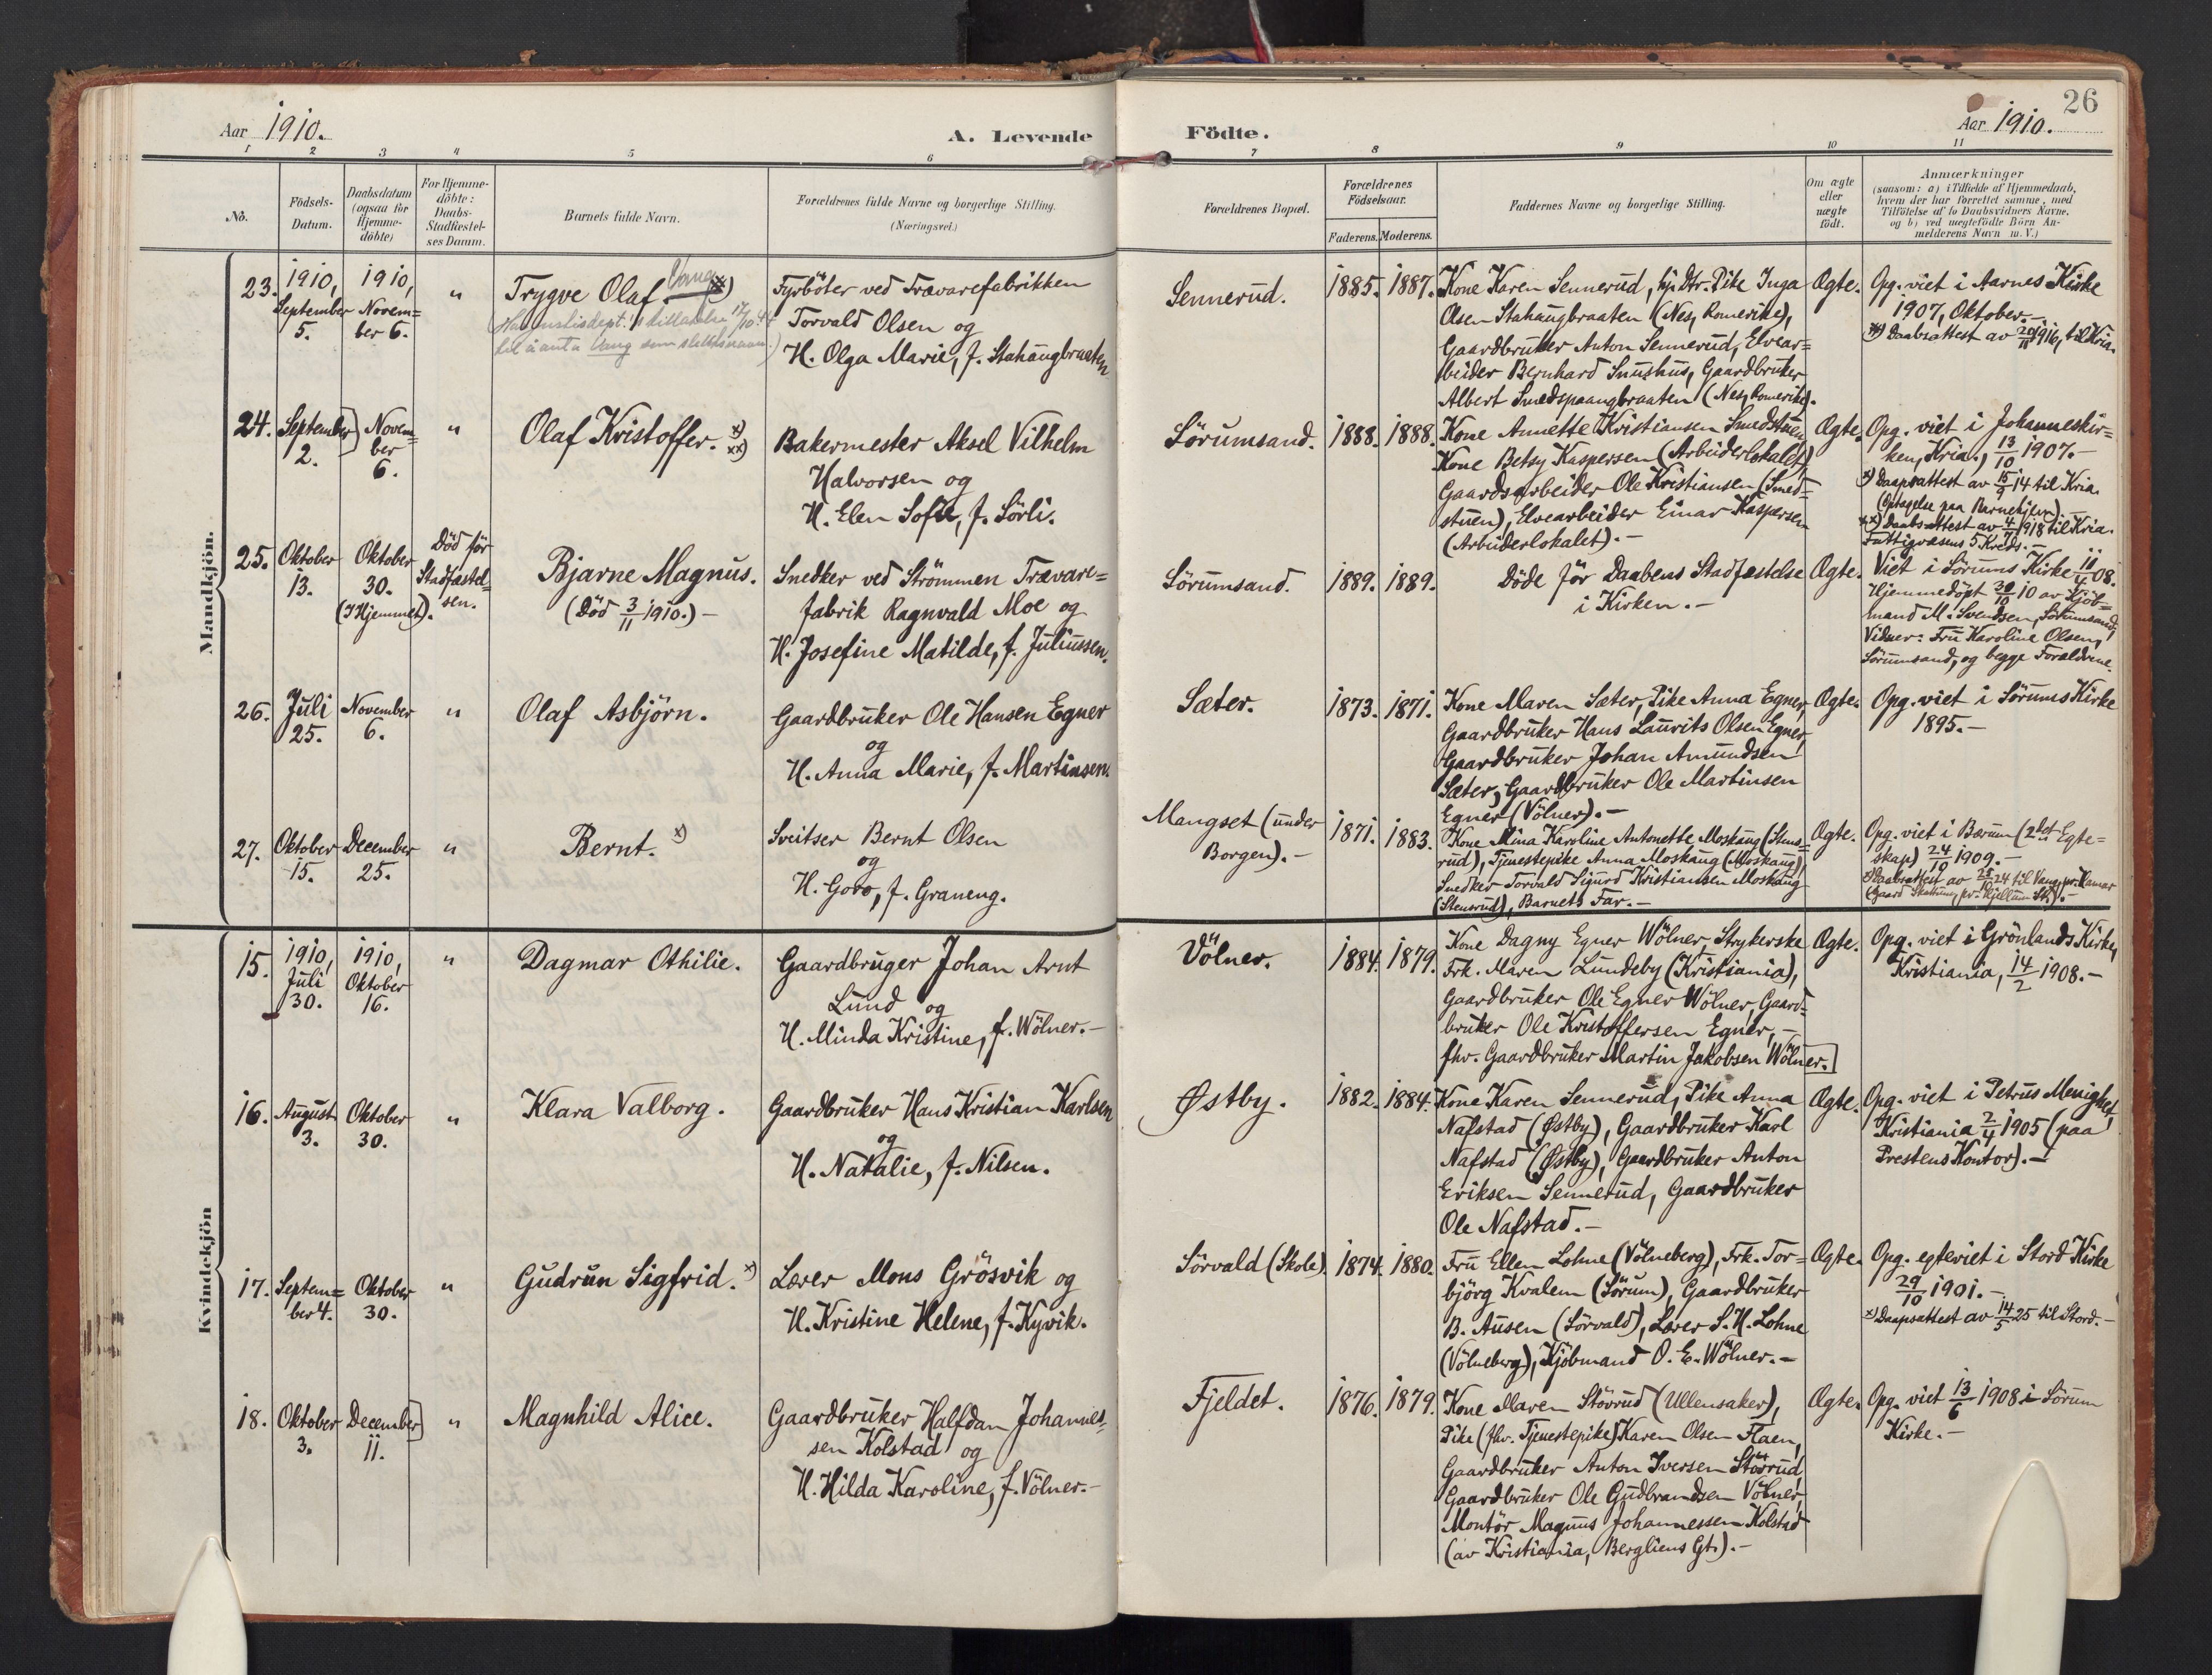 Aar 1910.
A. Levende
Födte.
26
Aar 1910.
1 2 3 4 5 6 7 8 9 10 11
No.
Födsels-
Datum.
Daabsdatum
(ogsaa for
Hjemme-
döbte)
For Hjemme-
döbte:
Daabs-
Stadfæstel-
ses Datum.
Barnets fulde Navn.
Forældrenes fulde Navne og borgerlige Stilling.
(Næringsvei.)
Forældrenes Bopæl.
Forældrenes
Födselsaar.
Faderens.
Moderens.
Faddernes Navne og borgerlige Stilling.
Om ægte
eller
uægte
födt.
Anmærkninger
(saasom: a) i Tilfælde af Hjemmedaab,
hvem der har forrettet samme, med
Tilföielse af to Daabsvidners Navne,
og b) ved uægtefödte Börn An-
melderens Navn m. V.)
Mandkjön.
23.
1910,
September
5.
1910,
Novem=
ber 6.
"
Trygve Olaf. Vang xx)
til å anta Vang som slektsnavn.)
Fyrböter ved Trævarefabrikken
Torvald Olsen og
H. Olga Marie, f. Stahaugbraaten.
Sennerud.
1885.
1887.
Kone Karen Sennerud, Pike Inga
Olsen Stahaugbraaten (Nes, Romerike),
Gaardbruker Anton Sennerud, Elvear=
beider Bernhard Snushus, Gaardbruker
Albert Smedspaangbraaten (Nes, Romerike).
Ægte.
Opg. viet i Aarnes Kirke
1907, Oktober.-
Daabsattest av 20/11 1916, til Kria.
24.
September
2.
Novem=
ber
6.
"
Olaf Kristoffer. x)
xx)
Bakermester Aksel Vilhelm
Halvorsen og
H. Elen Sofie, f. Sörli.
Sörumsand.
1888.
1888.
Kone Annette Kristiansen Smedstuen,
Kone Betsy Kaspersen (Arbeiderlokalet),
Gaardsarbeider Ole Kristiansen (Smed=
stuen), Elvearbeider Einar Kaspersen
(Arbeiderlokalet).-
Ægte.
Opg. viet i Johanneskir=
ken, Kria., 13/10 1907.-
x) Daapsattest av 15/9 14 til Kria.
(Optagelse paa Barnehjem).-
xx) Daabsattest av 4/7 1918 til Kria.
Fattigvæsens 5 Kreds.-
25.
Oktober
13.
Oktober
30.
(I Hjemmet).
Död för
Stadfæstel-
sen.
Bjarne Magnus.
(Död 3/11 1910.)-
Snedker ved Strömmen Trævare=
fabrik Ragnvald Moe og
H. Josefine Matilde, f. Juliussen.
Sörumsand.
1889.
1889.
Döde för Daabens Stadfæstelse
i Kirken.-
Ægte.
Viet i Sörums Kirke 11/4 08.
Hjemmedöpt 30/10 10 av Kjöb=
mand M. Svendsen, Sörumsand,
Vidner: Fru Karoline Olsen,
Sörumsand, og begge Forældrene.
26.
Juli
25.
November
6.
"
Olaf Asbjörn.
Gaardbruker Ole Hansen Egner
og
H. Anna Marie, f. Martinsen.
Sæter.
1873.
1871.
Kone Maren Sæter, Pike Anna Egner,
Gaardbruker Hans Laurits Olsen Egner,
Gaardbruker Johan Amundsen
Sæter, Gaardbruker Ole Martinsen
Egner (Völner).-
Ægte.
Opg. viet i Sörums Kirke
1895.-
27.
Oktober
15.
December
25.
"
Bernt. x)
Sveitser Bernt Olsen
og
H. Goro, f. Graneng.
Mangset (under
Borgen).-
1871.
1883.
Kone Mina Karoline Antonette Moskaug (Stens=
rud), Tjenestepike Anna Moskaug (Moskaug),
Snedker Torvald Sigurd Kristiansen Moskaug
(Stensrud), Barnets Far.-
Ægte.
Opg. viet i Bærum (2det Egte=
skap) 24/10 1909.-
x) Daabsattest av 24 til Vang, pr. Hamar
Kvindekjön
15.
1910,
Juli
30.
1910,
Oktober
16.
"
Dagmar Othilie.
Gaardbruger Johan Arnt
Lund og
H. Minda Kristine, f. Wölner.-
Völner.
1884.
1879.
Kone Dagny Egner Wölner, Strykerske
Frk. Maren Lundeby (Kristiania),
Gaardbruker Ole Egner Wölner, Gaard=
bruker Ole Kristoffersen Egner,-
fhv. Gaardbruker Martin Jakobsen Wölner.
Ægte.
Opg. viet i Grönlands Kirke,
Kristiania, 14/2 1908.-
16.
August
3.
Oktober
30.
"
Klara Valborg.
Gaardbruker Hans Kristian Karlsen
og
H. Natalie, f. Nilsen.
Østby.
1882.
1884.
Kone Karen Sennerud, Pike Anna
Nafstad (Østby), Gaardbruker Karl
Nafstad (Østby), Gaardbruker Anton
Eriksen Sennerud, Gaardbruker
Ole Nafstad.-
Ægte.
Opg. viet i Petrus Menighet,
Kristiania 2/4 1905 (paa
Prestens Kontor).-
17.
Septem=
ber 4.
Oktober
30.
"
Gudrun Sigfrid. x)
Lærer Mons Grösvik og
H. Kristine Helene, f. Kyvik.
Sörvald (Skole).
1874.
1880.
Fru Ellen Lohne (Völneberg), Frk. Tor=
björg Kvalem (Sörum), Gaardbruker
B. Ausen (Sörvald), Lærer S. H. Lohne
(Völneberg), Kjöbmand O. E. Wölner.-
Ægte.
Opg. egteviet i Stord Kirke
29/10 1901.-
x) Daapsattest av 14/5 25 til Stord.-
18.
Oktober
3.
December
11.
"
Magnhild Alice.
Gaardbruker Halfdan Johannes=
sen Kolstad og
H. Hilda Karoline, f. Völner.-
Fjeldet.
1876.
1879.
Kone Maren Stövrud (Ullensaker),
Pike (fhv. Tjenestepike) Karen Olsen Flaen,
Gaardbruker Anton Iversen Stövrud,
Gaardbruker Ole Gudbrandsen Völner,
Montör Magnus Johannessen Kolstad
(av Kristiania, Bergliens Gt.).-
Ægte.
Opg. viet 13/6 1908 i Sörum
Kirke.-